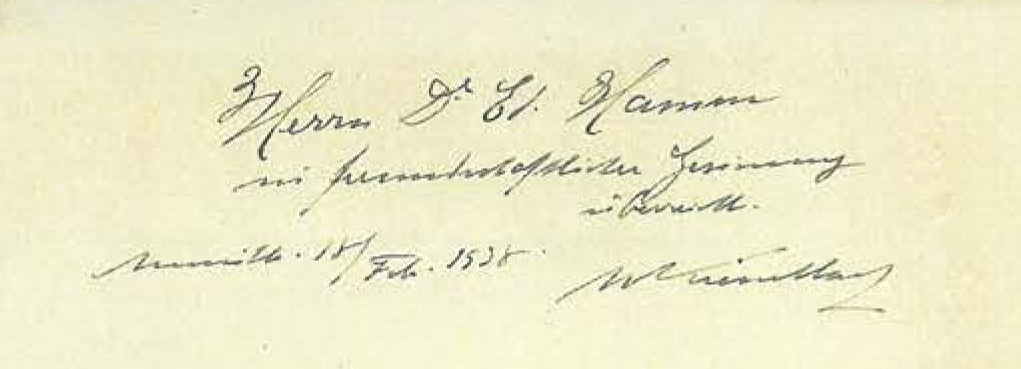 Herrn Dr Et. Hamm
in freundschaftlicher Gesinnung
überreicht.
18/ Feb. 1938.